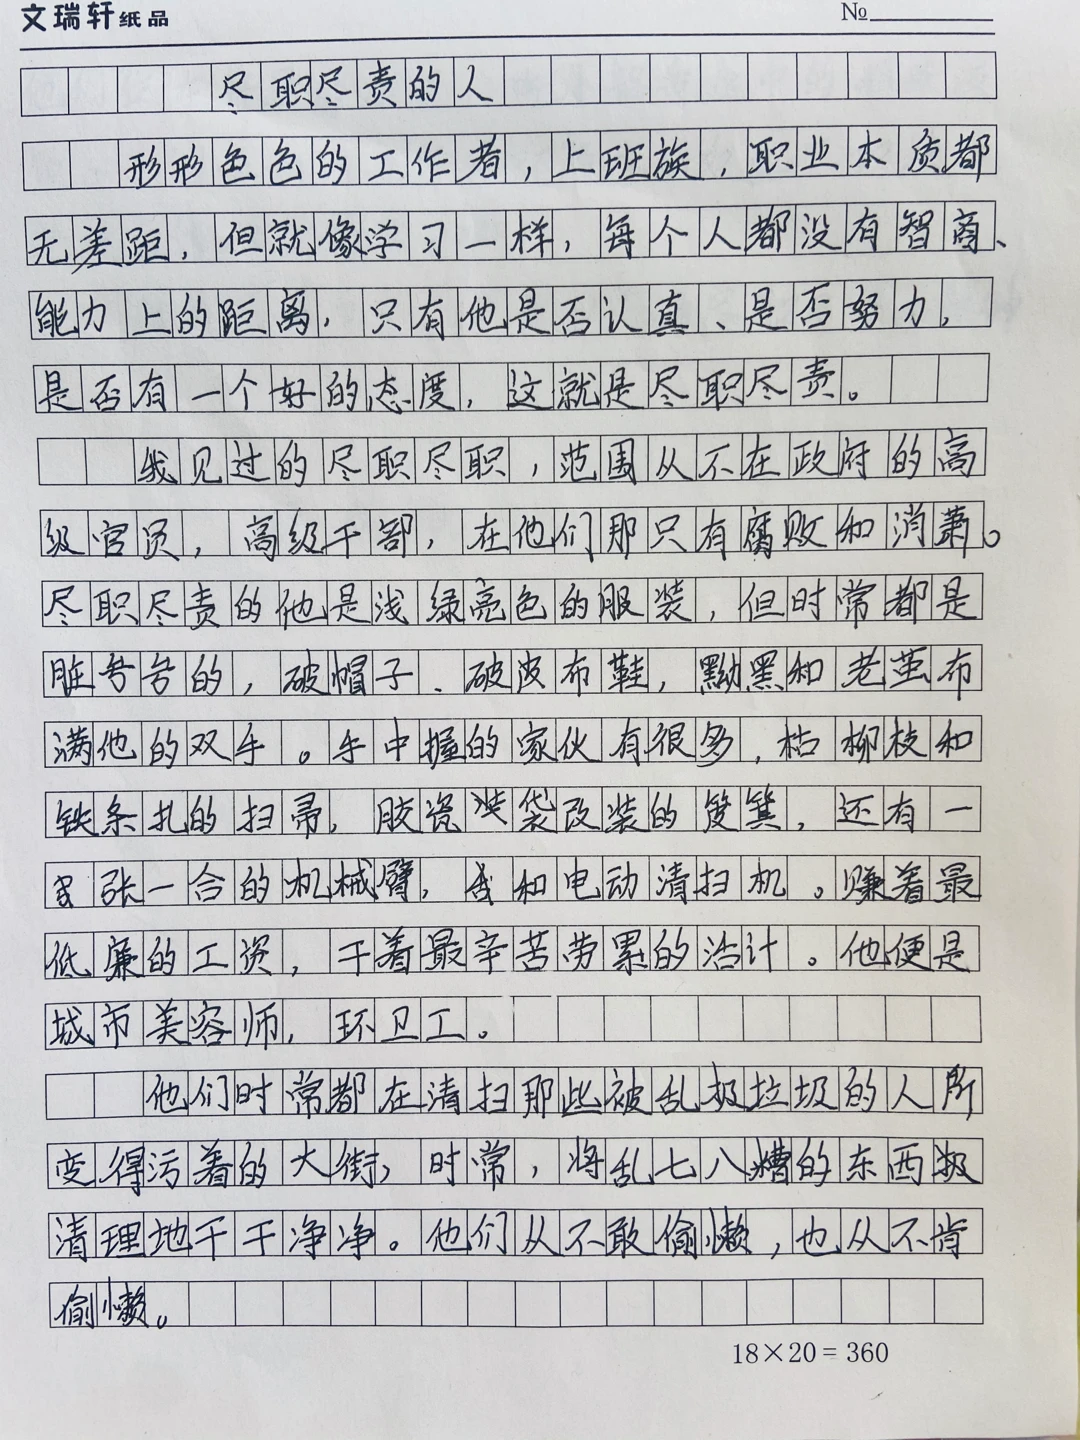 文瑞轩纸品 №
尽职尽责的人
形形色色的工作者，上班族，职业本质都
无差距，但就像学习一样，每个人都没有智商、
能力上的距离，只有他是否认真、是否努力，
是否有一个好的态度，这就是尽职尽责。
我见过的尽职尽职，范围从不在政府的高
级官员，高级干部，在他们那只有腐败和消萧。
尽职尽责的他是浅绿亮色的服装，但时常都是
脏兮兮的，破帽子、破皮布鞋，黝黑和老茧布
满他的双手。手中握的家伙有很多，枯柳枝和
铁条扎的扫帚，胶瓷装袋改装的簸箕，还有一
张一合的机械臂，和电动清扫机。赚着最
低廉的工资，干着最辛苦劳累的活计。他便是
城市美容师，环卫工。
他们时常都在清扫那些被乱扔垃圾的人所
变得污着的大街，时常，将乱七八糟的东西
清理地干干净净。他们从不敢偷懒，也从不肯
偷懒。
18×20=360